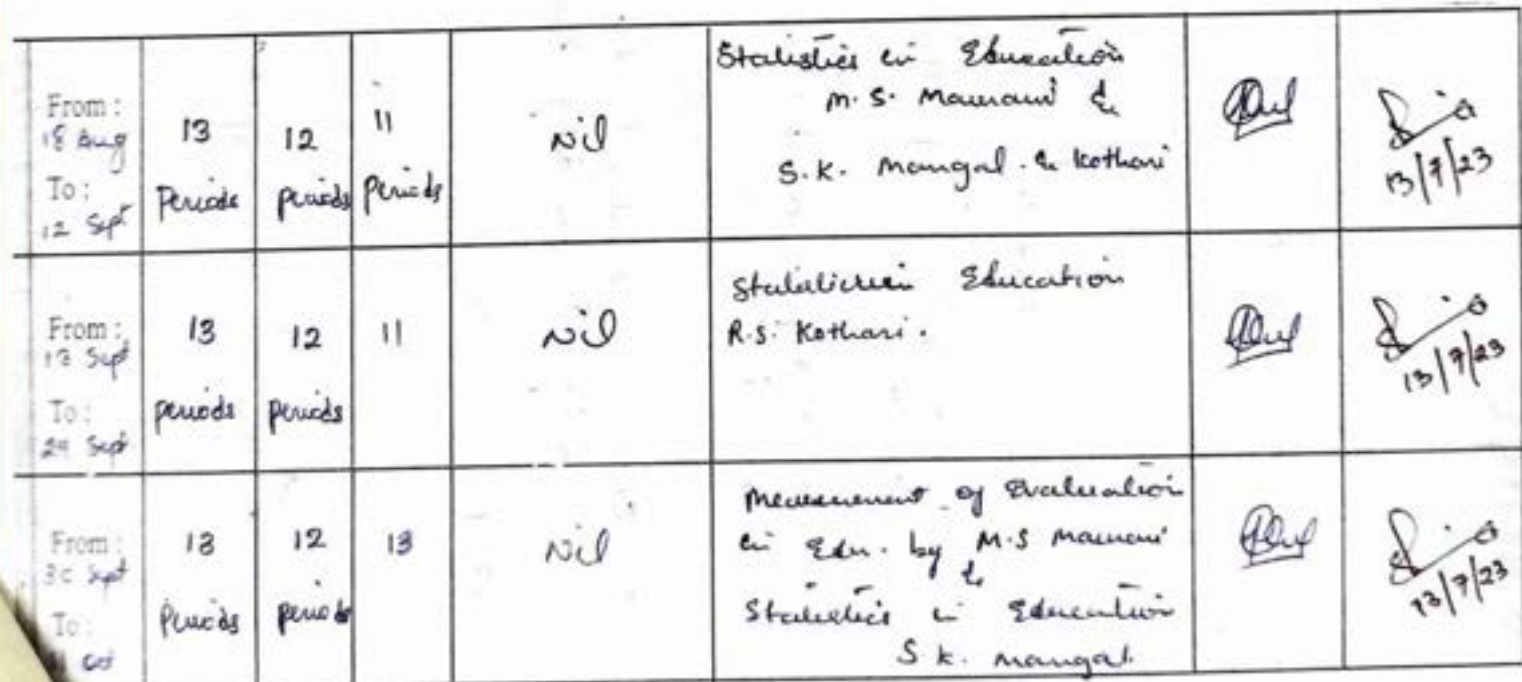 From :
18 Aug
To :
12 Sept
13
Periods
12
periods
11
periods
Nil
Statistics in Education
M.S. &
S.K. Mangal. & Kothari
13/7/23
From :
13 Sept
To :
29 Sept
13
periods
12
periods
11
Nil
Education
R.S. Kothari.
13/7/23
From :
30 Sept
To :
Oct
13
Periods
12
periods
13
Nil
Measurement of Evaluation
in Edu. by M.S
&
Statistics in Education
S.K. Mangal.
13/7/23